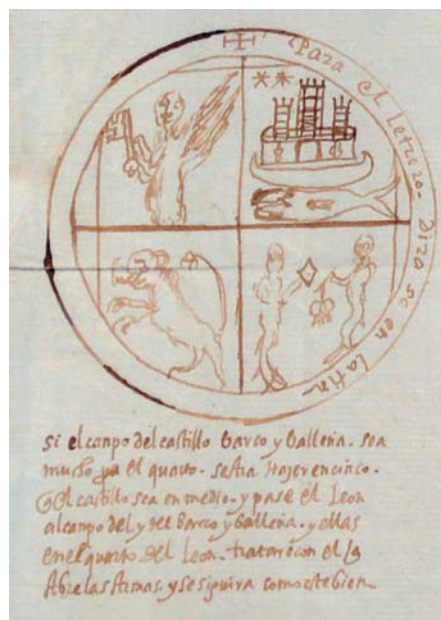 Para el letrero. Dira se en latin
si el canpo del castillo barco y ballena. sea
mucho pa el quarto. se tra en cinco.
el castillo sea en medio. y pase el Leon
al canpo del y del barco y ballena. y ellas
en el quarto del Leon. tratar con el
las Armas. y se si como este bien